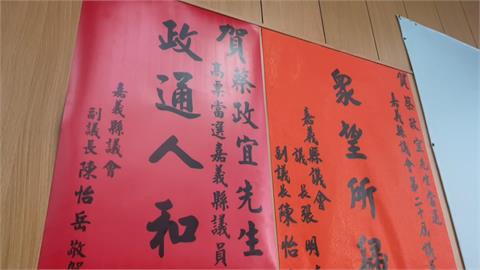 賀蔡政宜先生
高票當選嘉義縣議員
政通人和
嘉義縣議會
副議長陳怡岳敬賀
賀蔡政宜先生當選
嘉義縣議會第二十屆
眾望所歸
嘉義縣議會
議長張明
副議長陳怡